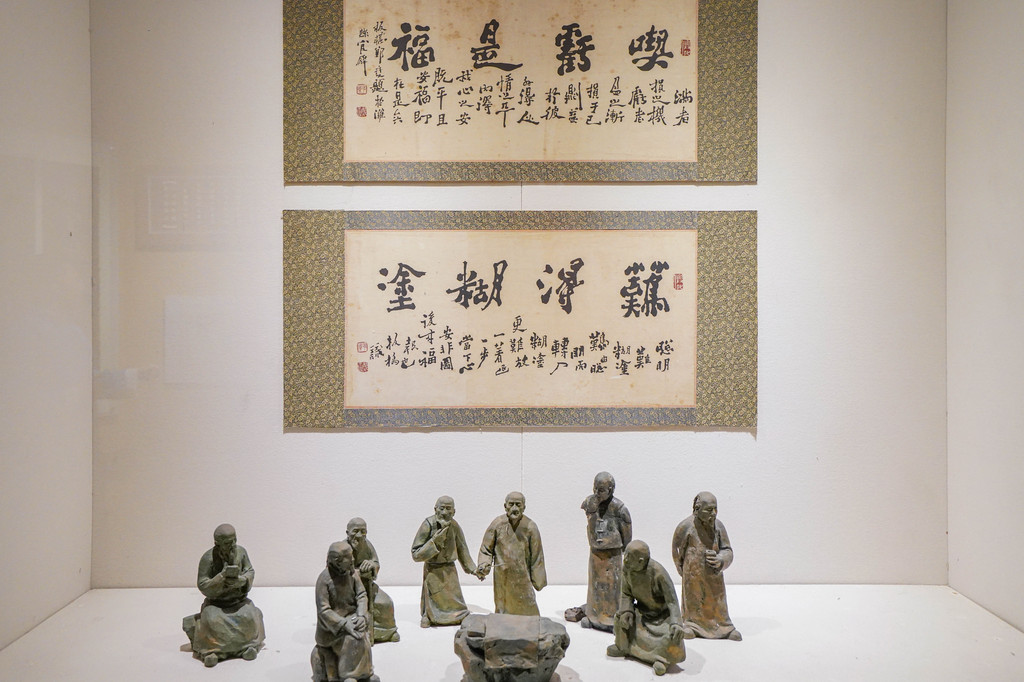 喫虧是福
滿者
損之機
虧者
盈之漸
損于己
則益
於彼
外得人
情之平
内得
我心之安
既平且
安福即
在是矣
板橋鄭燮題於濰
縣官廨
難得糊塗
聰明
難
糊塗
難由聰
明而
轉入
糊塗
更難放
一著退
一步
當下心
安非圖
後來福
報也
板橋
識